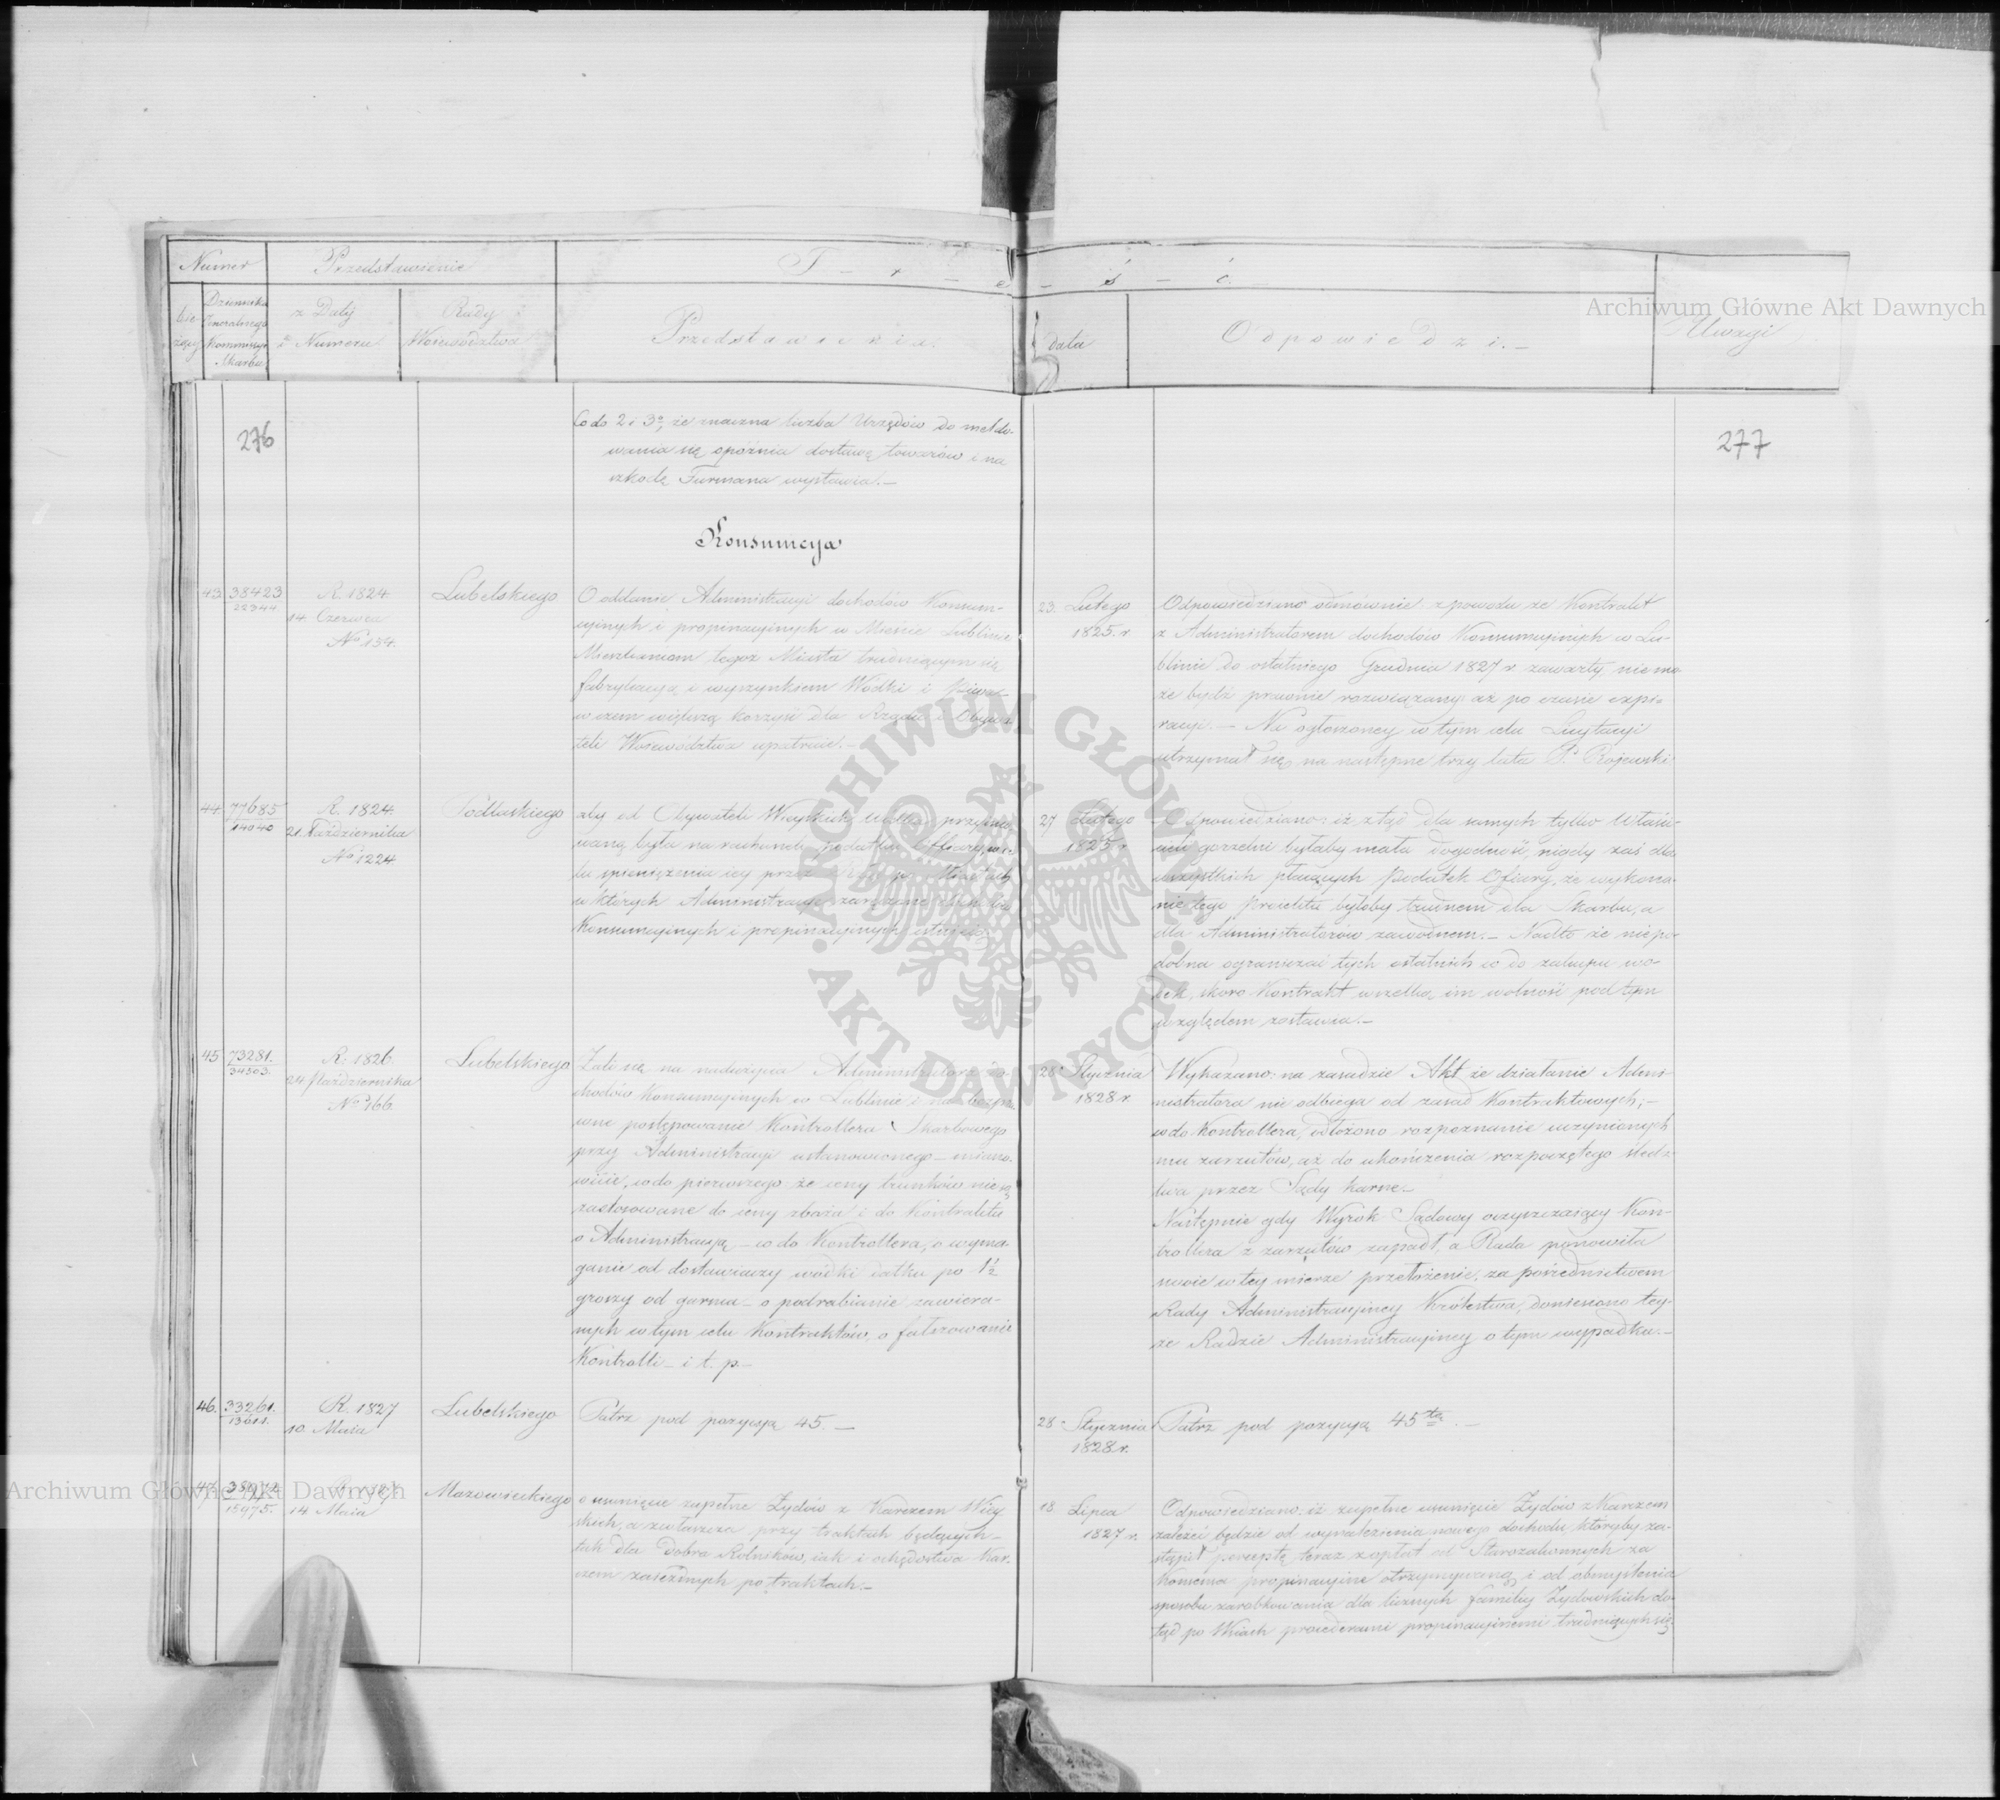 Numer
Przedstawienie
T - r - e - ś - ć. -
bie-
żący
Dziennika
Generalnego
Kommissyi
Skarbu
z Daty
i Numeru
Rady
Województwa
Przedstawienia.
data
Odpowiedzi. -
Uwagi
Archiwum Główne Akt Dawnych
276
277
Co do 2 i 3º, że znaczna liczba Urzędów do meldo-
wania się opóźnia dostawę towarów i na
szkodę Furmana wystawia. -
Konsumcya
43.
38423
22344.
R. 1824
14. Czerwca
Nº 154.
Lubelskiego
O oddanie Administracyi dochodów Konsum-
cyjnych i propinacyjnych w Mieście Lublinie
Mieszkańcom tegoż Miasta trudniącym się
fabrykacyą i wyszynkiem Wódki i Piwa -
w czem większą korzyść dla Rządu i Obywa-
teli Województwa upatruie. -
23. Lutego
1825. r.
Odpowiedziano odmównie z powodu że Kontrakt
z Administratorem dochodów Konsumcyjnych w Lu-
blinie do ostatniego Grudnia 1827 r. zawarty, nie mo-
że bydź prawnie rozwiązany aż po czasie expi-
racyi. - Na ogłoszoney w tym celu Licytacyi
utrzymał się na następne trzy lata P. Rojewski
44.
77685
14040
R. 1824.
21. Października
Nº 1224
Podlaskiego
aby od Obywateli Wieyskich Wódka przyimo-
waną była na rachunek podatku Offiary, w ce-
lu spieniężenia iey przez po Miastach
w których Administracye zarządzane
Konsumcyjnych i propinacyjnych istnieią
27 Lutego
1825 r.
Odpowiedziano: iż ztąd dla samych tylko Właści-
cieli gorzelni byłaby mała dogodność, nigdy zaś dla
wszystkich płacących Podatek Ofiary, że wykona-
nie tego Proiektu byłoby trudnem dla Skarbu, a
dla Administratorów zawodnem. - Nadto że niepo-
dobna ograniczać tych ostatnich co do zakupu wó-
dek, skoro Kontrakt wszelką im wolność pod tym
względem zostawia. -
45
73281.
34503.
R. 1826
24. Października
Nº 166
Lubelskiego
Żali się na nadużycia Administratora do-
chodów Konsumcyjnych w Lublinie i
wne postępowanie Kontrollera Skarbowego
przy Administracyi ustanowionego - miano-
wicie, co do pierwszego że ceny trunków nie są
zastosowane do ceny zboża i do Kontraktu
o Administracyą - co do Kontrollera, o wyma-
ganie od dostawiaczy wódki datku po 1½
groszy od garnca - o podrabianie zawiera-
nych w tym celu Kontraktów, o fałszowanie
Kontrolli - i t. p. -
28 Stycznia
1828 r.
Wykazano: na zasadzie Akt że działanie Admi-
nistratora nie odbiega od zasad Kontraktowych, -
co do Kontrollera, odłożono rozpoznanie uczynionych
mu zarzutów, aż do ukończenia rozpoczętego śledz-
twa przez Sądy karne. -
Następnie gdy Wyrok Sądowy oczyszczaiący Kon-
trollera z zarzutów zapadł, a Rada ponowiła
swoie w tey mierze przełożenie, za pośrednictwem
Rady Administracyiney Królestwa, doniesiono tey-
że Radzie Administracyiney o tym wypadku. -
46.
33261.
13611.
R. 1827
10. Maia
Lubelskiego
Patrz pod pozycyą 45. -
28 Stycznia
1828 r.
Patrz pod pozycyą 45tą. -
47.
15975.
R. 1827
14 Maia
Mazowieckiego
o usunięcie zupełne Żydów z Karczem Wiey-
skich, a zwłaszcza przy traktach będących -
tak dla dobra Rolników, iak i ochędostwa Kar-
czem zaiezdnych po traktach. -
18. Lipca
1827 r.
Odpowiedziano, iż zupełne usunięcie Żydów z Karczem
zależeć będzie od wynalezienia nowego dochodu, któryby za-
stąpił perceptę teraz z opłat od Starozakonnych za
Konsensa propinacyjne otrzymywaną, i od obmyślenia
sposobu zarobkowania dla licznych familiy Żydowskich do-
tąd po Wsiach procederami propinacyinemi trudniących się
Archiwum Główne Akt Dawnych
ARCHIWUM GŁÓWNE
AKT DAWNYCH